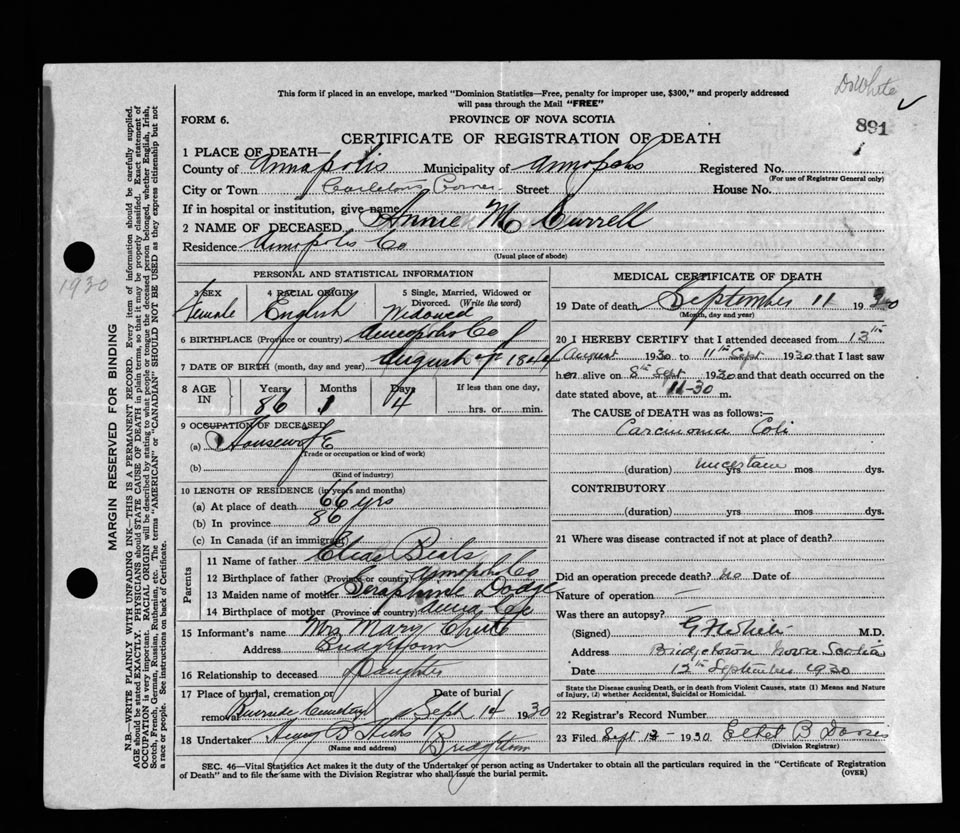 Dr White
This form if placed in an envelope, marked "Dominion Statistics—Free, penalty for improper use, $300," and properly addressed
will pass through the Mail "FREE"
FORM 6.
PROVINCE OF NOVA SCOTIA
891
CERTIFICATE OF REGISTRATION OF DEATH
1 PLACE OF DEATH—
County of Annapolis Municipality of Annapolis Registered No.
(For use of Registrar General only)
City or Town Carleton Corner Street House No.
If in hospital or institution, give name
2 NAME OF DECEASED Annie M Currell
Residence Annapolis Co
(Usual place of abode)
PERSONAL AND STATISTICAL INFORMATION
3 SEX Female
4 RACIAL ORIGIN English
5 Single, Married, Widowed or Divorced. (Write the word) Widowed
6 BIRTHPLACE (Province or country) Annapolis Co
7 DATE OF BIRTH (month, day and year) August
8 AGE IN Years 86 Months 1 Days 4 If less than one day,
hrs. or min.
9 OCCUPATION OF DECEASED
(a) Housewife
(Trade or occupation or kind of work)
(b)
(Kind of industry)
10 LENGTH OF RESIDENCE (in years and months)
(a) At place of death 66 yrs
(b) In province 86
(c) In Canada (if an immigrant)
Parents
11 Name of father Elias Beals
12 Birthplace of father (Province or country) Annapolis Co
13 Maiden name of mother Seraphine Dodge
14 Birthplace of mother (Province or country) Anna Co
15 Informant's name Mrs Mary Chute
Address Bridgetown
16 Relationship to deceased Daughter
17 Place of burial, cremation or removal Cemetery Date of burial Sept 14 1930
18 Undertaker Hicks Bridgetown
(Name and address)
MEDICAL CERTIFICATE OF DEATH
19 Date of death September 11 1930
(Month, day and year)
20 I HEREBY CERTIFY that I attended deceased from 13th
August 1930 to 11th Sept 1930 that I last saw
her alive on 8th Sept 1930 and that death occurred on the
date stated above, at 11-30 m.
The CAUSE OF DEATH was as follows:—
Carcinoma Coli
(duration) uncertain yrs mos dys.
CONTRIBUTORY
(duration) yrs mos dys.
21 Where was disease contracted if not at place of death?
Did an operation precede death? No Date of
Nature of operation —
Was there an autopsy? —
(Signed) M.D.
Address Bridgetown Nova Scotia
Date 12th September 1930
State the Disease causing Death, or in death from Violent Causes, state (1) Means and Nature
of Injury, (2) whether Accidental, Suicidal or Homicidal.
22 Registrar's Record Number
23 Filed Sept 13 - 1930 Ethel B
(Division Registrar)
SEC. 46—Vital Statistics Act makes it the duty of the Undertaker or person acting as Undertaker to obtain all the particulars required in the "Certificate of Registration
of Death" and to file the same with the Division Registrar who shall issue the burial permit.
(OVER)
1930
MARGIN RESERVED FOR BINDING
N.B.—WRITE PLAINLY WITH UNFADING INK—THIS IS A PERMANENT RECORD. Every item of information should be carefully supplied.
AGE should be stated EXACTLY. PHYSICIANS should STATE CAUSE OF DEATH in plain terms, so that it may be properly classified. Exact statement of
OCCUPATION is very important. RACIAL ORIGIN will be described by stating to what people or tongue the deceased person belonged, whether English, Irish,
Scotch, French, German, Russian, Ruthenian, etc. The terms "AMERICAN" or "CANADIAN" SHOULD NOT BE USED as they express citizenship but not
a race or people. See instructions on back of Certificate.